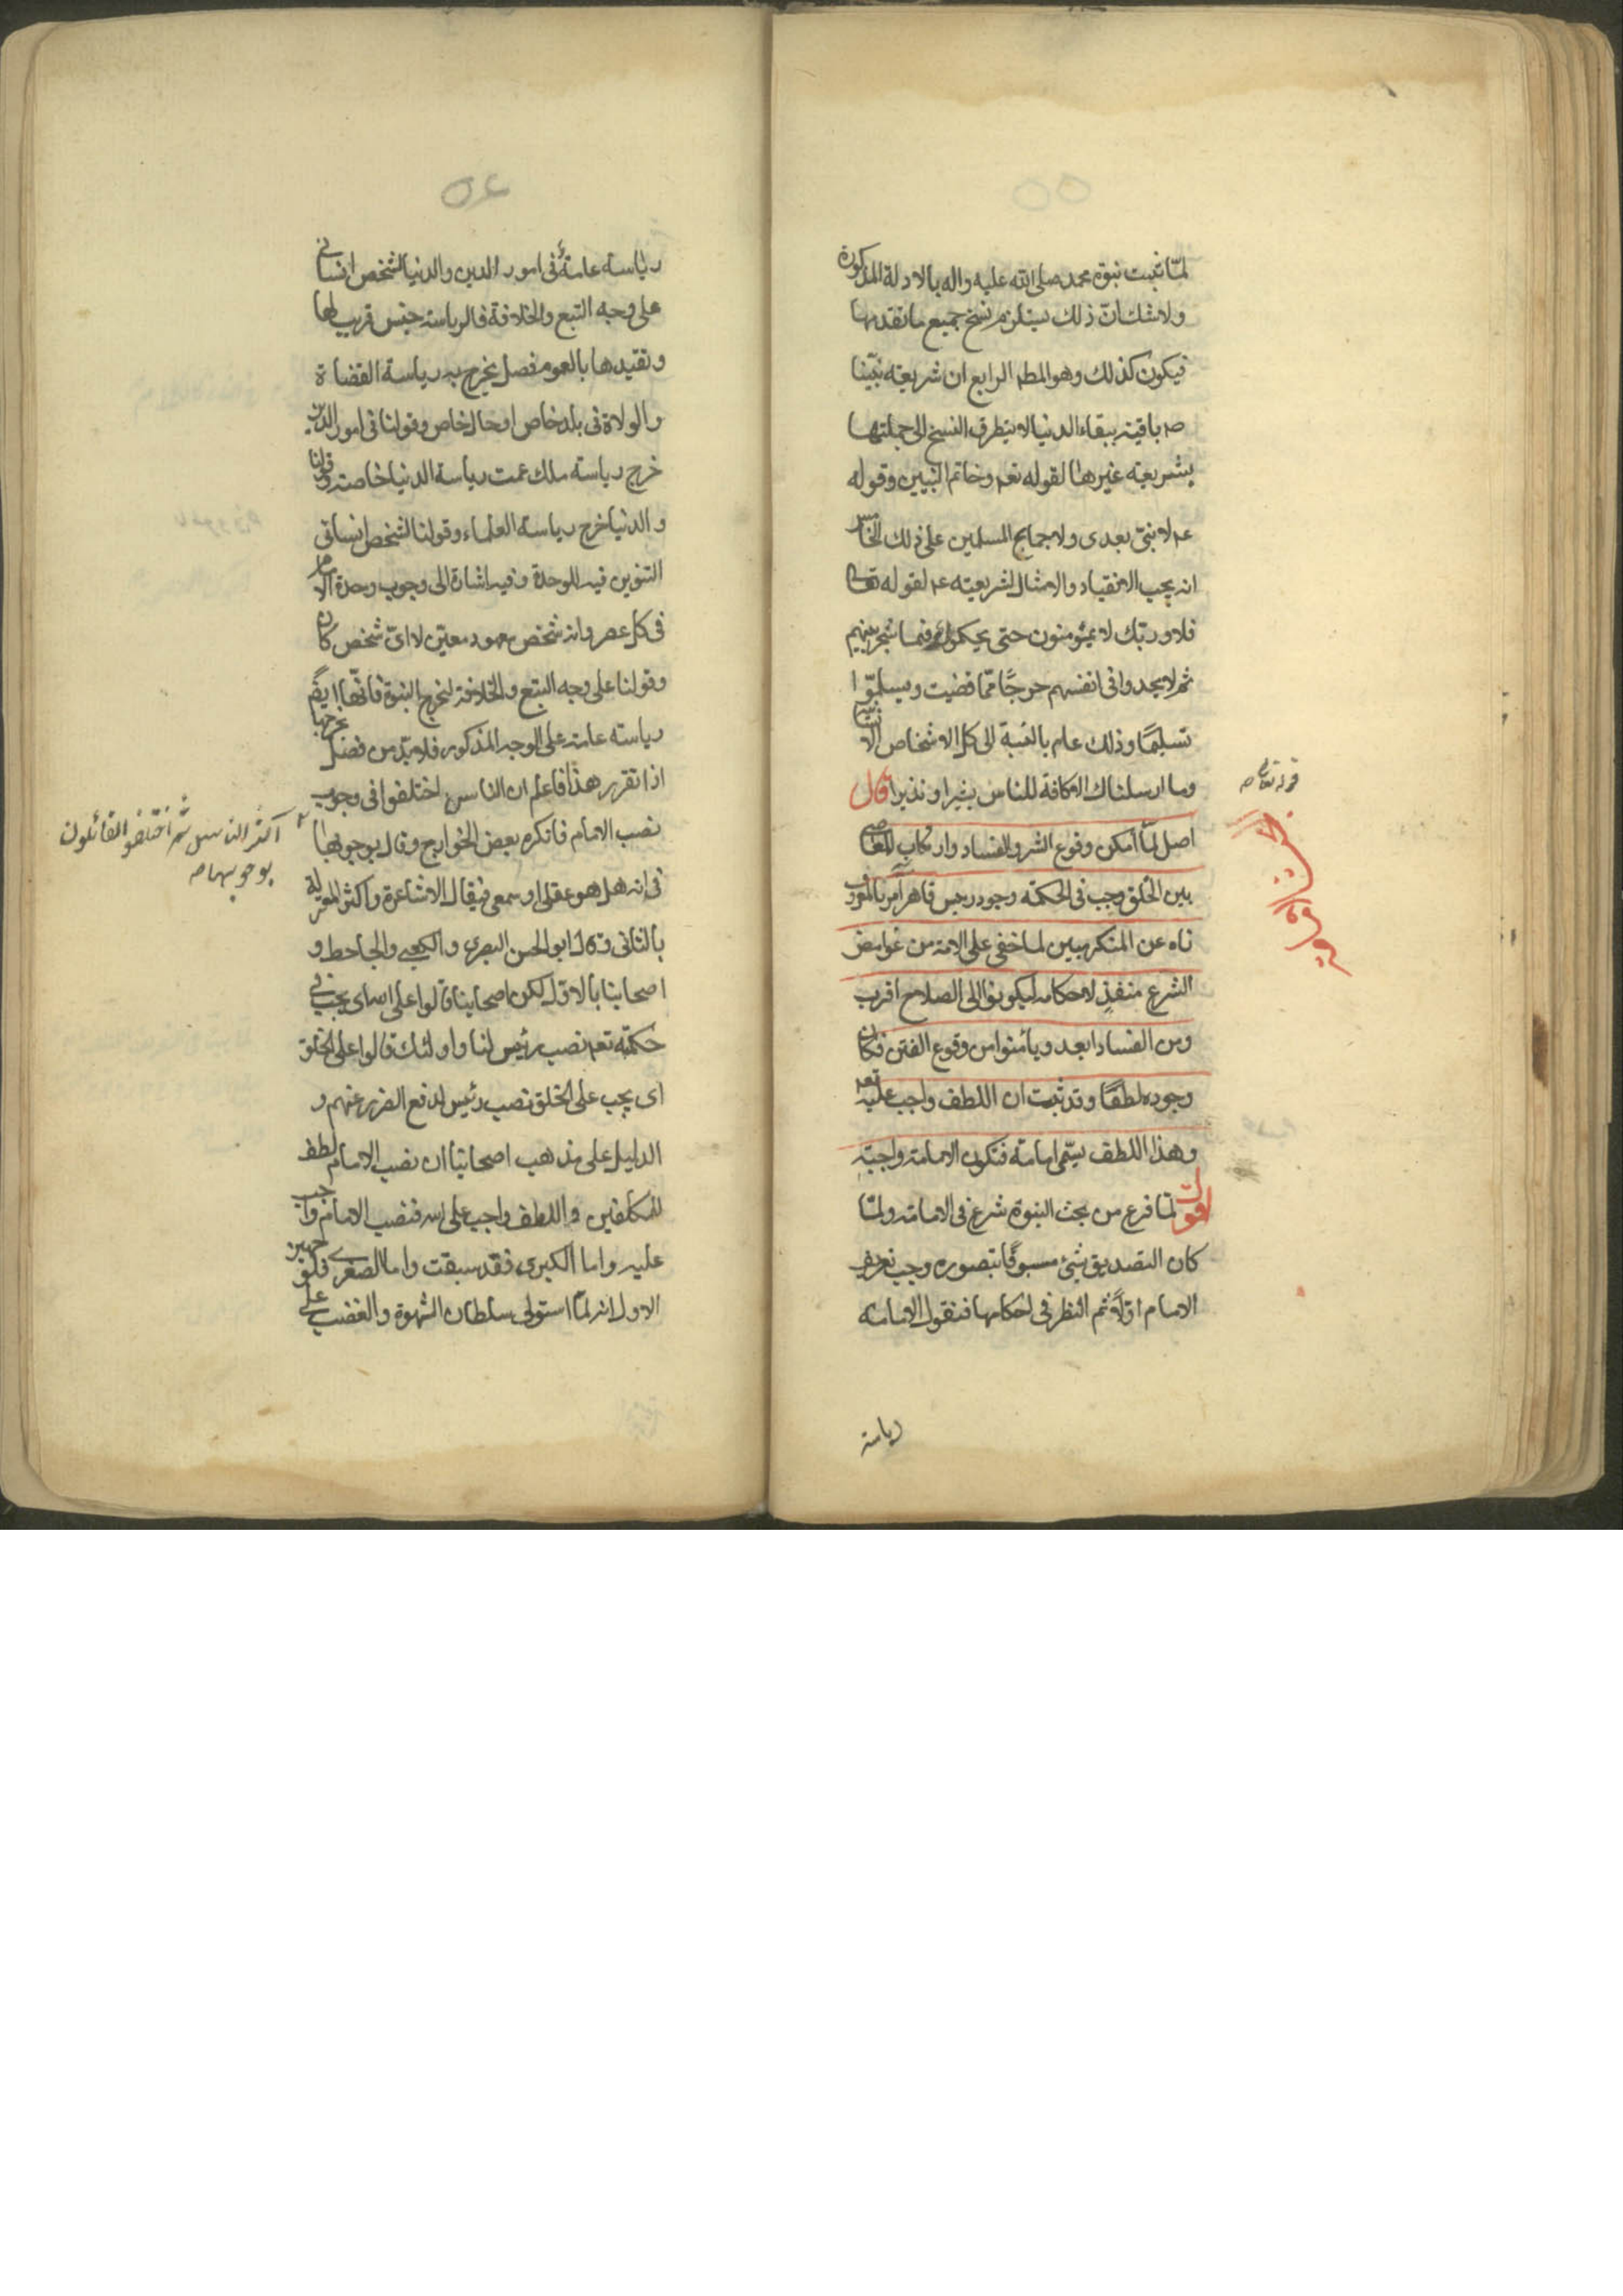 ٥٥
لمّا ثبت نبوّة محمد صلى الله عليه واله بالادلة المذكورة
ولاشك انّ ذلك يستلزم نسخ جميع ما تقدمها
فيكون كذلك وهو المطم الرابع ان شريعته نبيّنا
صم باقية ببقاء الدنيا لا يتطرق النسخ الى جملتها
بشريعة غيرها لقوله تعم وخاتم النبيين وقوله
عم لا نبىّ بعدى ولاجماع المسلمين على ذلك الخامس
انه يجب الانقياد والامتثال لشريعته عم لقوله تعالى
فلا وربّك لا يؤمنون حتى يحكموك فيما شجر بينهم
ثم لا يجدوا فى انفسهم حرجًا ممّا قضيت ويسلّموا
تسليمًا وذلك عام بالنسبة الى كل الاشخاص الانسانية
وما ارسلناك الا كافة للناس بشيرا ونذيرا قال
قوله تعالى صح
اصل لمّا أمكن وقوع الشر والفساد وارتكاب المعاصى
بين الخلق وجب فى الحكمة وجود رييس قاهر آمر بالمعروف
ناه عن المنكر مبين لما خفى على الامة من غوامض
الشرع منفذ لاحكامه ليكونوا الى الصلاح اقرب
ومن الفساد ابعد ويأمنوا من وقوع الفتن فكان
وجوده لطفًا وقد ثبت ان اللطف واجب عليه تعم
وهذا اللطف يسمّى امامة فتكون الامامة واجبة
اقول لمّا فرغ من بحث النبوة شرع فى الامامة ولمّا
كان التصديق بشئ مسبوقًا بتصوره وجب تعريف
الامام اوّلاً ثم النظر فى احكامها فنقول الامامة
رياسة
٥٦
رياسة عامةٌ فى امور الدين والدنيا لشخص انسانى
على وجه التبع والخلافة فالرياسة جنس قريب لها
وتقيدها بالعموم فصل يخرج به رياسة القضاة
والولاة فى بلد خاص او حال خاص وقولنا فى امور الدين
خرج رياسة ملك عمت رياسة الدنيا خاصة وقولنا
والدنيا خرج رياسة العلماء وقولنا لشخص انسانى
التنوين فيه للوحدة وفيه اشارة الى وجوب وحدة الامام
فى كل عصر وانه شخص معهود معيّن لا اىّ شخص كان
وقولنا على وجه التبع والخلافة لتخرج النبوة فانّها ايضًا
رياسة عامة على الوجه المذكور فلا بدّ من فصل يخرجها
اذا تقرر هذا فاعلم ان الناس اختلفوا فى وجوب
نصب الامام فانكره بعض الخوارج وقال بوجوبها
اكثر الناس ثم اختلفو القائلون
بوجوبها صح
فى انه هل هو عقلى او سمعى فقال الاشاعرة واكثر المعتزلة
بالثانى وقال ابو الحسن البصرى والكعبى والجاحظ و
اصحابنا بالاول لكن اصحابنا قالوا على الله اى يجب فى
حكمته تعم نصب رئيس لنا واولئك قالوا على الخلق
اى يجب على الخلق نصب رئيس لدفع الضرر عنهم و
الدليل على مذهب اصحابنا ان نصب الامام لطف
للمكلفين واللطف واجب على الله فنصب الامام واجب
عليه واما الكبرى فقد سبقت واما الصغرى فلوجهين
الاول انه لمّا استولى سلطان الشهوة والغضب على